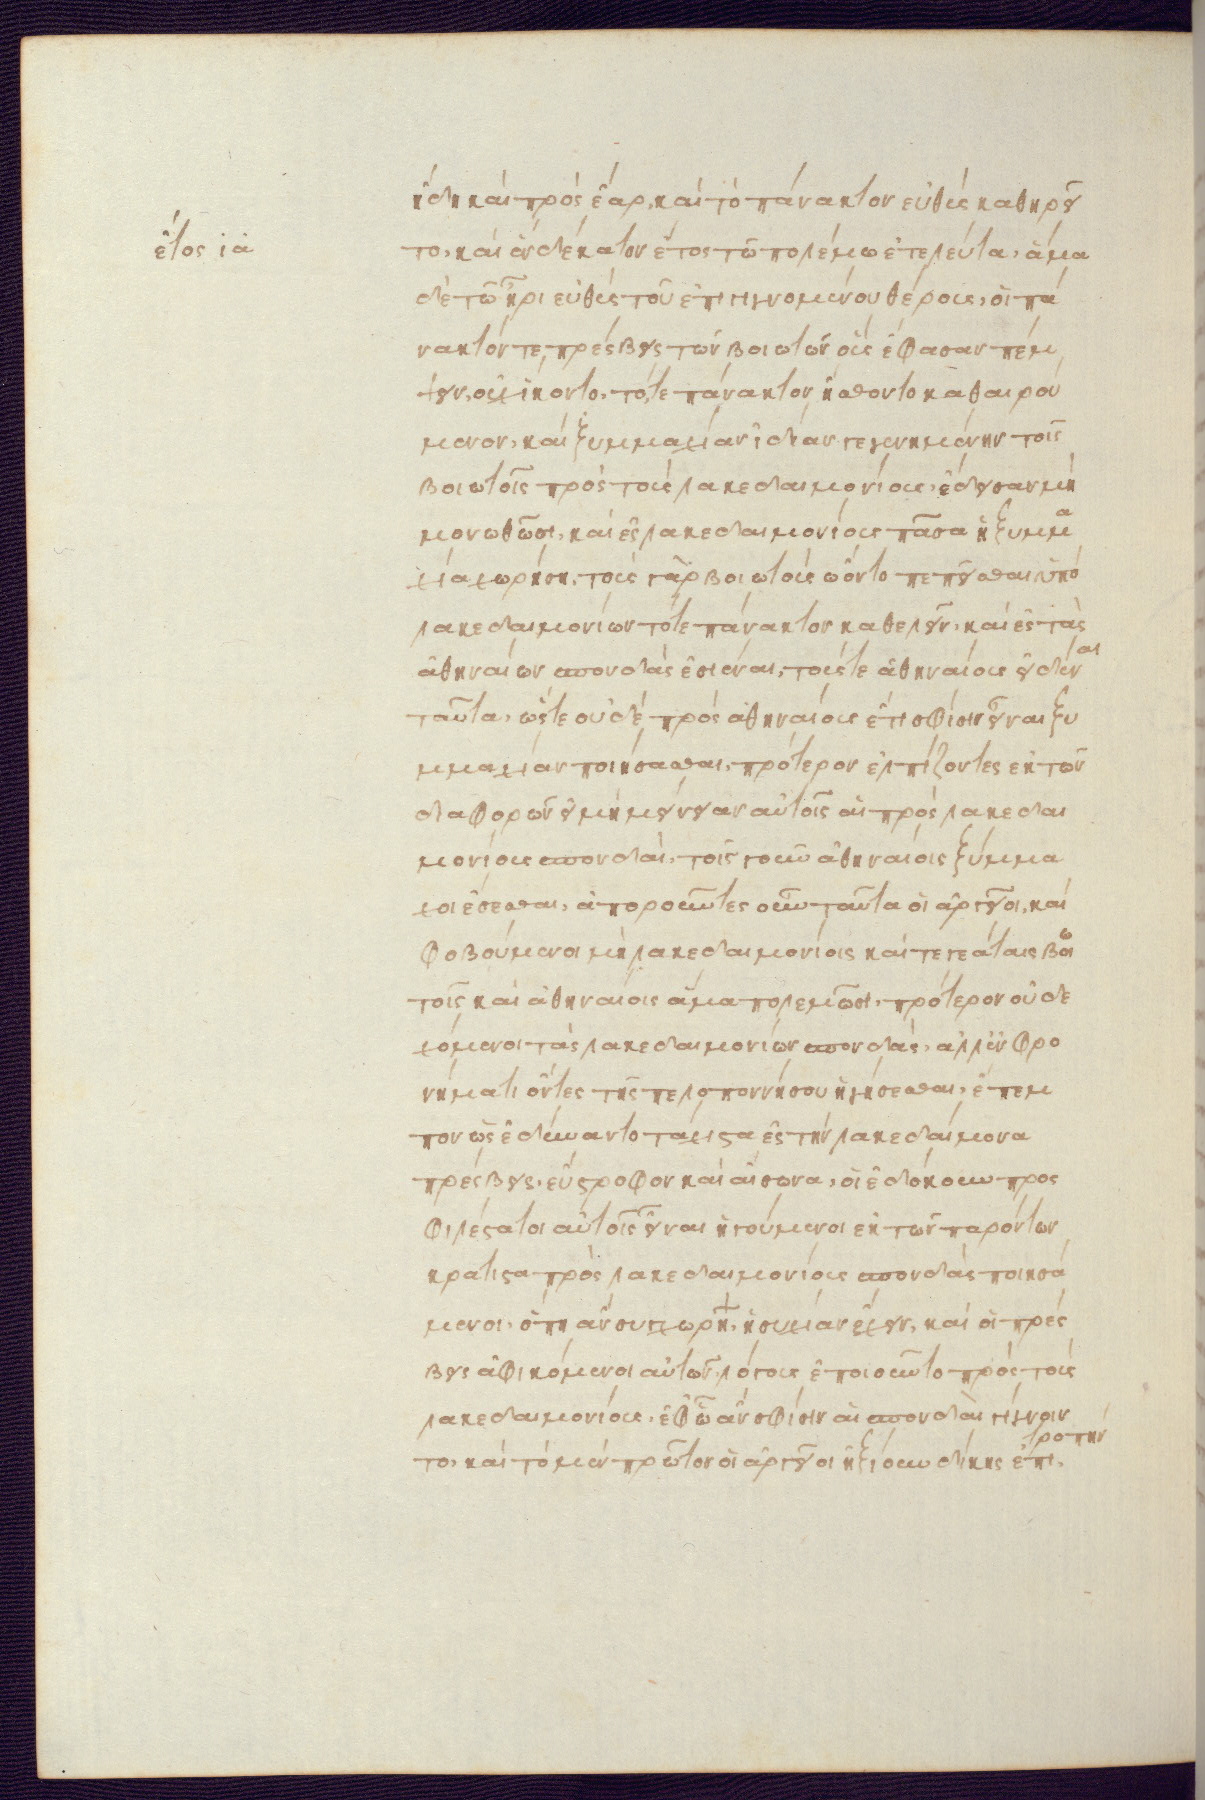 ἤδη καὶ πρὸς ἔαρ, καὶ τὸ πάνακτον εὐθὺς καθηρεῖ
ἔτος ιὰ
το, καὶ ἑνδέκατον ἔτος τῶ πολέμω ἐτελεύτα, ἅμα
δὲ τῶ ἦρι εὐθὺς τοῦ ἐπιγιγνομένου θέρους, οἱ πά
νακτόν τε πρέσβεις τῶν βοιωτῶν οὓς ἔφασαν πέμ
ψειν, οὐχ ἷκοντο, τό,τε πάνακτον ἤσθοντο καθαιρού
μενον, καὶ ξυμμαχίαν ἰδίαν γεγενημένην τοῖς
βοιωτοῖς πρὸς τοὺς λακεδαιμονίους, ἔδεισαν μὴ
μονωθῶσι, καὶ ἐς λακεδαιμονίους πᾶσα ἡ ξυμμα
χία χωρήση, τοὺς γὰρ βοιωτοὺς ὤοντο πεπεῖσθαι ὑπὸ
λακεδαιμονίων τό,τε πάνακτον καθελεῖν, καὶ ἐς τὰς
ἀθηναίων σπονδὰς ἐσιέναι, τούς τε ἀθηναίους εἰδέναι
ταῦτα, ὥστε οὐδὲ πρὸς ἀθηναίους ἔτι σφίσιν εἶναι ξυ
μμαχίαν ποιήσασθαι, πρότερον ἐλπίζοντες ἐκ τῶν
διαφορῶν εἰ μὴ μείνειαν αὐτοῖς αἱ πρὸς λακεδαι
μονίους σπονδαὶ, τοῖς γοῦν ἀθηναίοις ξύμμα
χοι ἔσεσθαι, ἀποροῦντες οὖν ταῦτα οἱ ἀργεῖοι, καὶ
φοβούμενοι μὴ λακεδαιμονίοις καὶ τεγεάταις βοιω
τοῖς καὶ ἀθηναίοις ἅμα πολεμῶσι, πρότερον οὐ δε
χόμενοι τὰς λακεδαιμονίων σπονδὰς, ἀλλ' ἐν φρο
νήματι ὄντες τῆς πελοποννήσου ἡγήσεσθαι, ἔπεμ
πον ὡς ἐδύναντο τάχιστα ἐς τὴν λακεδαίμονα
πρέσβεις, εὔστροφον καὶ αἴσωνα, οἳ ἐδόκουν προς
φιλέστατοι αὐτοῖς εἶναι ἡγούμενοι ἐκ τῶν παρόντων
κράτιστα πρὸς λακεδαιμονίους σπονδὰς ποιησά
μενοι, ὅπη ἂν συγχωρῆ, ἡσυχίαν ἔχειν, καὶ οἱ πρέσ
βεις ἀφικόμενοι αὐτῶν, λόγους ἐποιοῦντο πρὸς τοὺς
λακεδαιμονίους, ἐφ' ὧ ἂν σφίσιν αἱ σπονδαὶ γίγνοιν
το, καὶ τὸ μὲν πρῶτον οἱ ἀργεῖοι ἠξίουν δίκης ἐπιτροπὴν